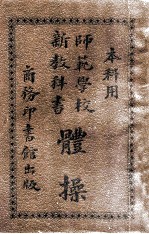 本科用
師範學校
新教科書
體操
商務印書館出版